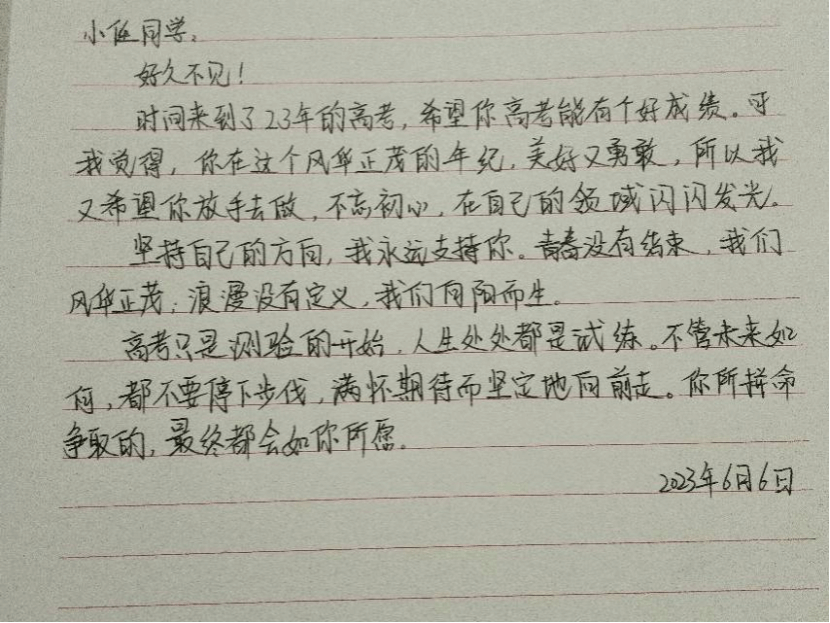 小伍同学,
好久不见!
时间来到了23年的高考,希望你高考能有个好成绩。可
我觉得,你在这个风华正茂的年纪,美好又勇敢,所以我
又希望你放手去做,不忘初心,在自己的领域闪闪发光。
坚持自己的方向,我永远支持你。青春没有结束,我们
风华正茂;浪漫没有定义,我们向阳而生。
高考只是测验的开始,人生处处都是试练。不管未来如
何,都不要停下步伐,满怀期待而坚定地向前走。你所拼命
争取的,最终都会如你所愿。
2023年6月6日